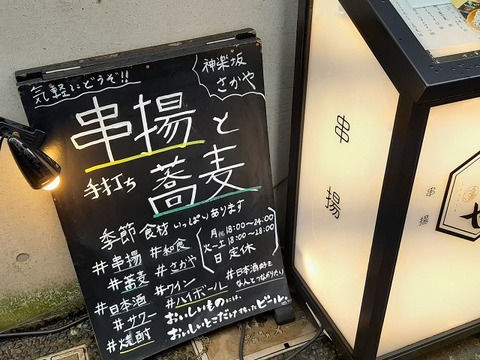 気軽にどうぞ!!
神楽坂
さかや
串揚と
手打ち
蕎麦
季節食材いっぱいあります
月 18:00~24:00
火~土 18:00~28:00
日 定休
#串揚 #和食
#蕎麦 #さかや
#日本酒 #ワイン
#サワー #ハイボール
#焼酎
#日本酒好きな
なんとつながりたい
おいしいものには、
おいしいとこだけすわったビール。
串揚
串揚